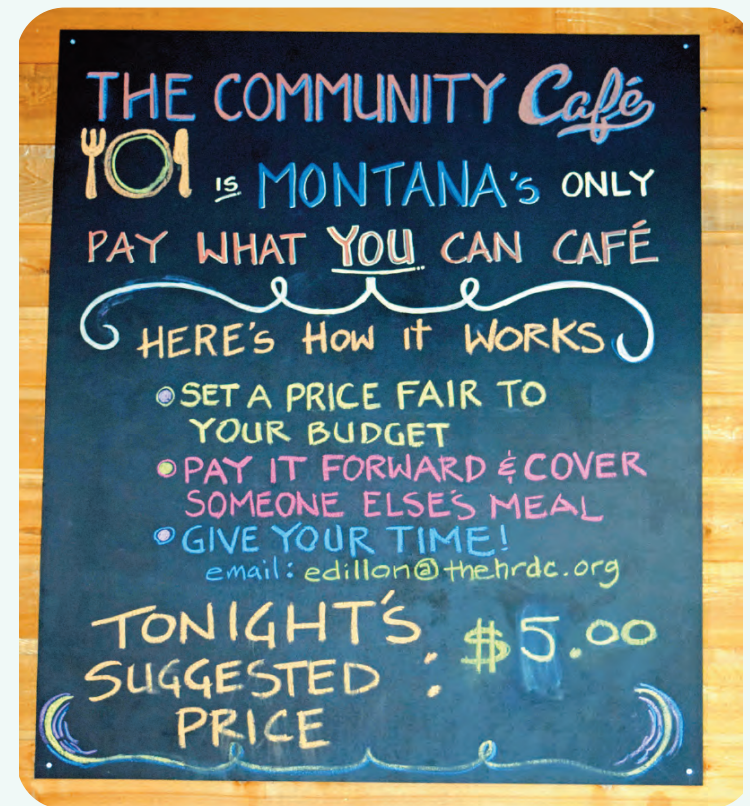 THE COMMUNITY Café
is MONTANA's ONLY
PAY WHAT YOU CAN CAFÉ
HERE'S HOW it WORKS
SET A PRICE FAIR TO
YOUR BUDGET
PAY IT FORWARD & COVER
SOMEONE ELSE'S MEAL
GIVE YOUR TIME!
email: edillon@thehrdc.org
TONIGHT'S
SUGGESTED : $5.00
PRICE